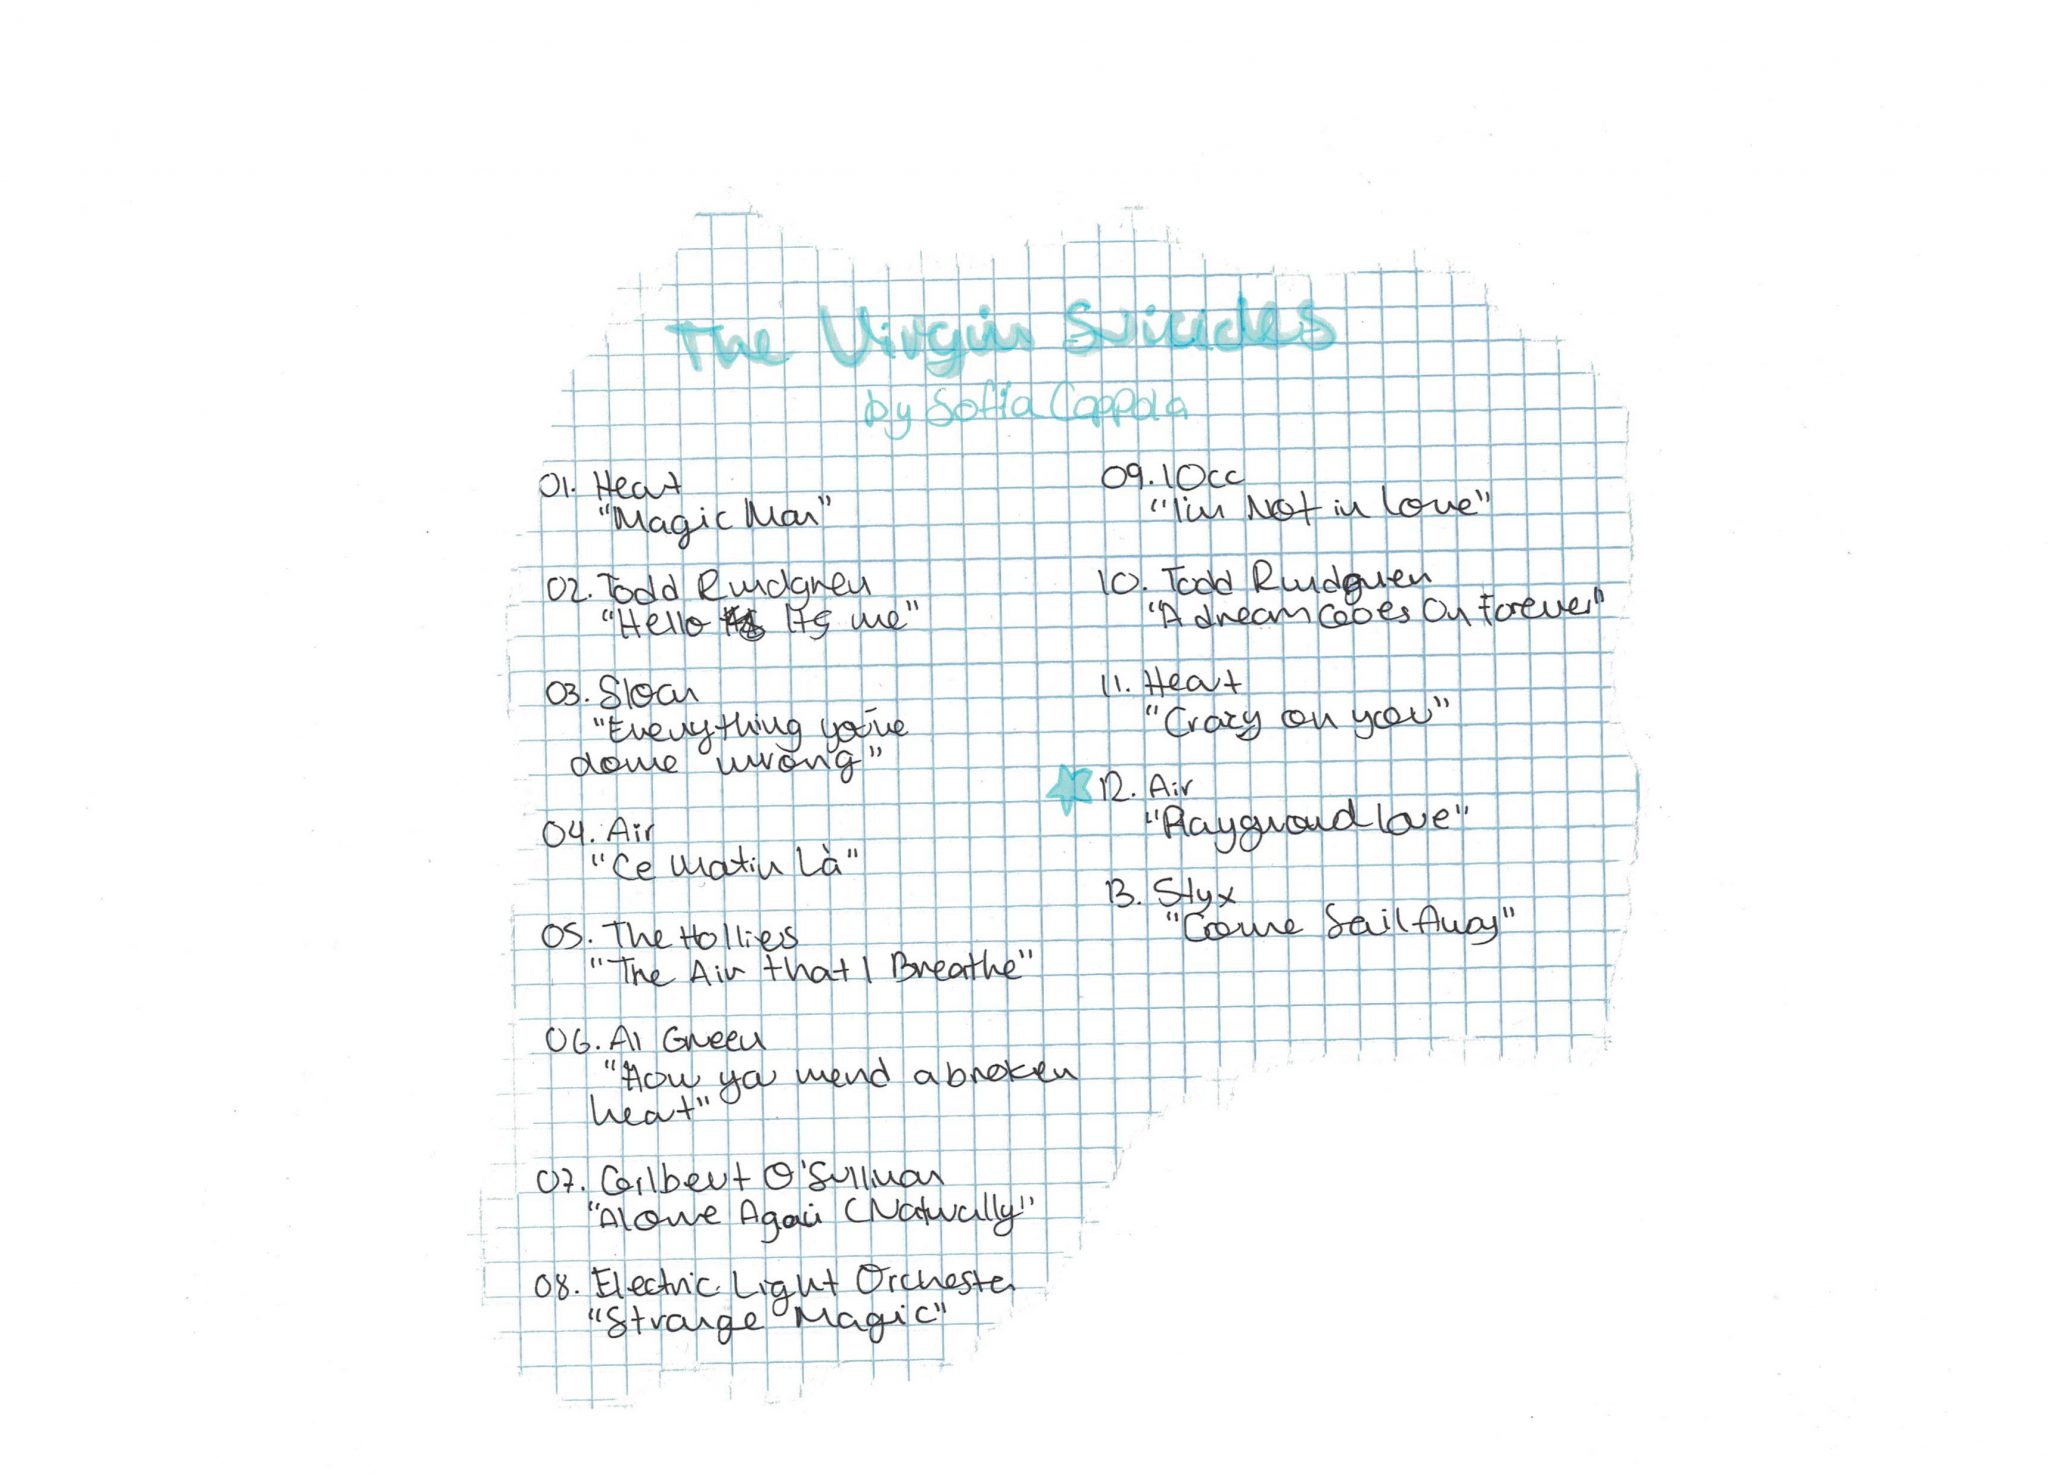 The Virgin Suicides
by Sofia Coppola
01. Heart
"Magic Man"
02. Todd Rundgren
"Hello Its me"
03. Sloan
"Everything you've
done wrong"
04. Air
"Ce Matin Là"
05. The Hollies
"The Air that I Breathe"
06. Al Green
"How ya mend a broken
heart"
07. Gilbert O'Sullivan
"Alone Again (Naturally"
08. Electric Light Orchester
"Strange Magic"
09. 10cc
"I'm Not in Love"
10. Todd Rundgren
"A dream Goes On Forever"
11. Heart
"Crazy on you"
12. Air
"Playground love"
13. Styx
"Come Sail Away"